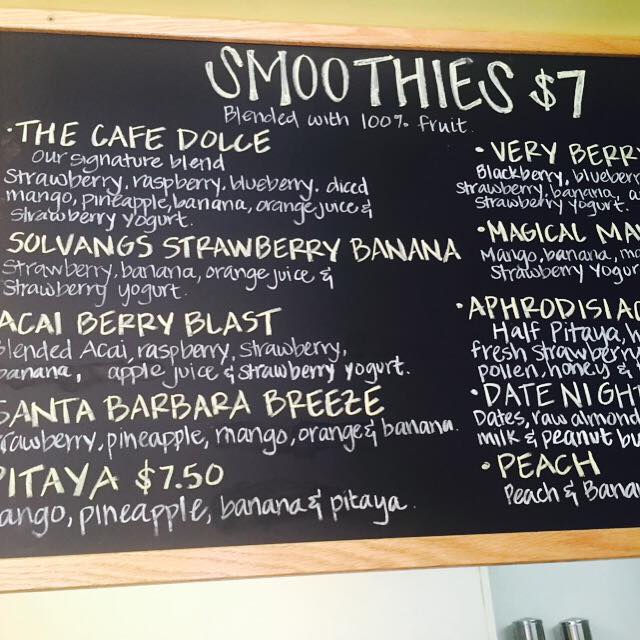 SMOOTHIES $7
Blended with 100% fruit.
• THE CAFE DOLCE
our signature blend
strawberry, raspberry, blueberry. diced
mango, pineapple, banana, orange juice &
strawberry yogurt.
SOLVANGS STRAWBERRY BANANA
strawberry, banana, orange juice &
strawberry yogurt.
ACAI BERRY BLAST
blended Acai, raspberry, strawberry,
banana, apple juice & strawberry yogurt.
SANTA BARBARA BREEZE
strawberry, pineapple, mango, orange & banana.
PITAYA $7.50
mango, pineapple, banana & pitaya.
• VERY BERRY
Blackberry, blueberr
strawberry, banana, a
strawberry yogurt.
• MAGICAL MA
Mango, banana, ma
strawberry yogur
• APHRODISIAC
Half Pitaya, h
fresh strawberry
pollen, honey &
• DATE NIGH
Dates, raw almond
milk & peanut bu
• PEACH
Peach & Bana